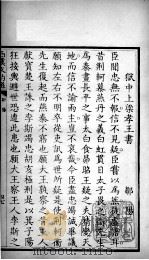 獄中上梁孝王書　鄒陽
臣聞忠無不報信不見疑臣常以為然徒虛語耳
昔荊軻慕燕丹之義白虹貫日太子畏之衛先生
為秦畫長平之事太白食昴昭王疑之夫精變天
地而信不諭兩主豈不哀哉今臣盡忠竭誠畢議
願知左右不明卒從吏訊為世所疑是使荊軻衛
先生復起而燕秦不寤也願大王孰察之昔玉人
獻寶楚王誅之李斯竭忠胡亥極刑是以箕子陽
狂接輿避世恐遭此患也願大王察玉人李斯之